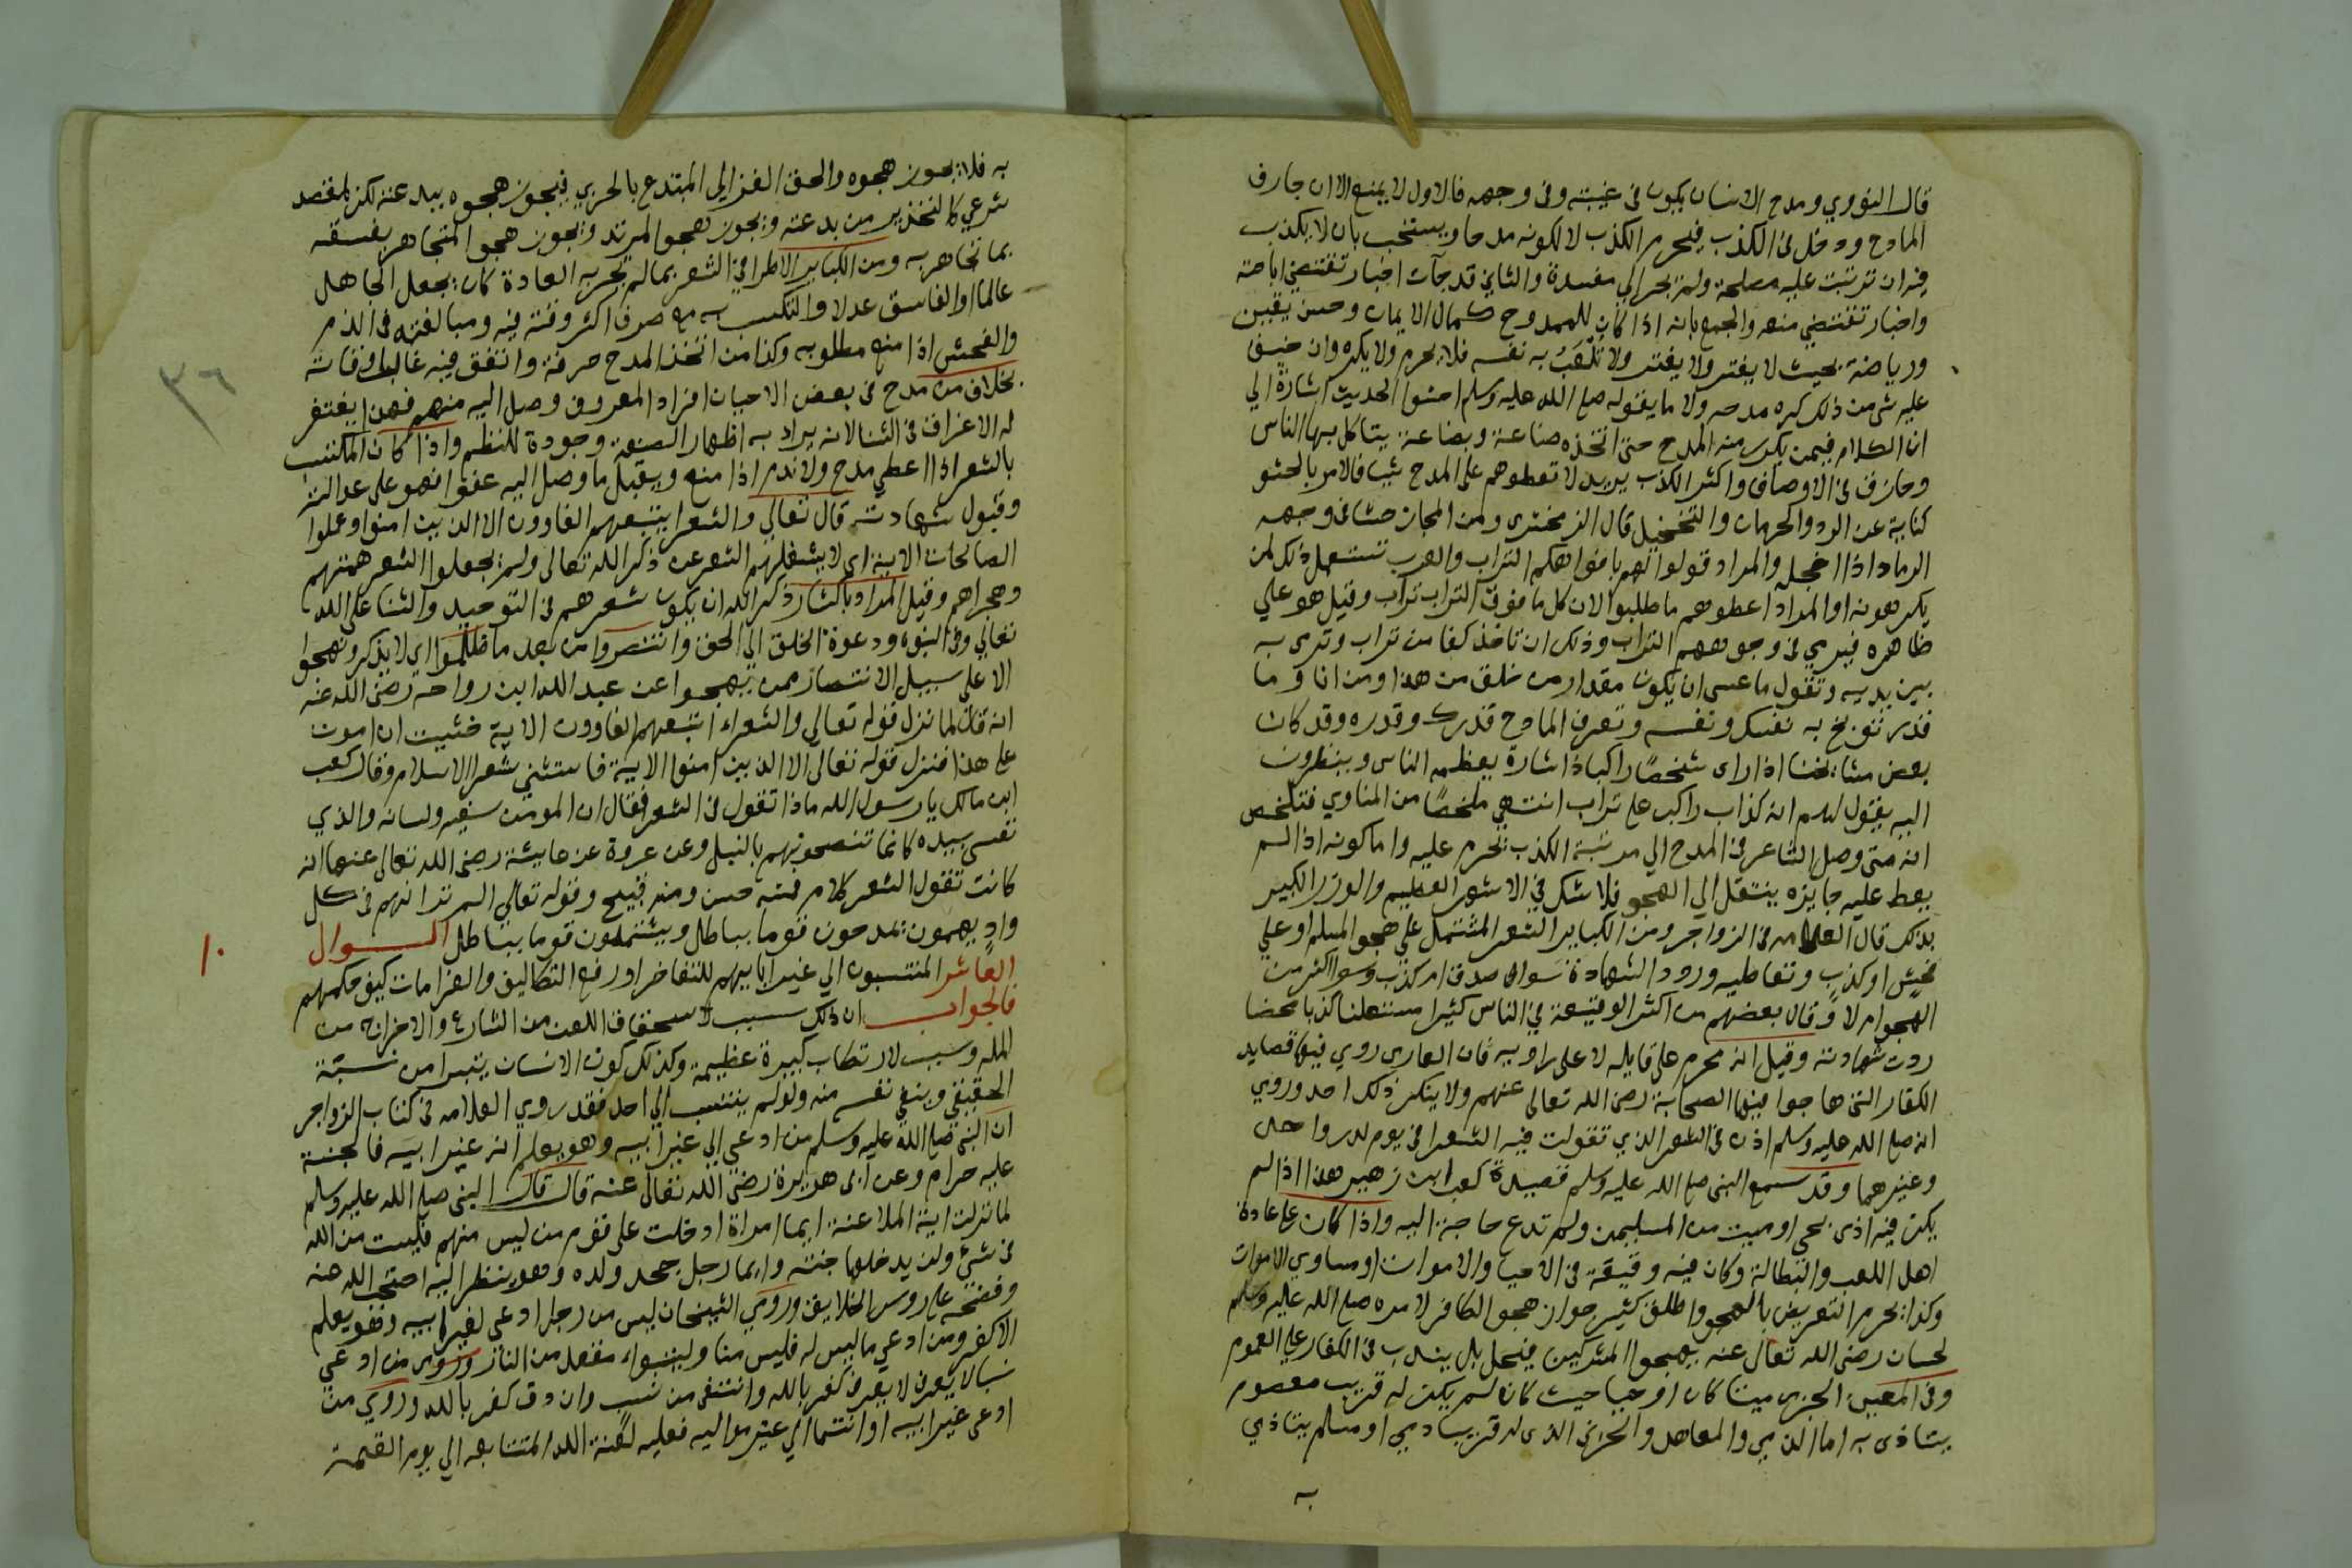 قال النووي ومدح الانسان يكون في غيبته وفي وجهه فالاول لا يمنع الا ان جازف
المادح ودخل في الكذب فيحرم الكذب لا لكونه مدحا ويستحب بان لا يكذب
فيه ان ترتبت عليه مصلحة ولم يجر الي مفسدة والثاني قد جآت اخبار تقتضي اباحته
واخبار تقتضي منعه والجمع بانه اذا كان للممدوح كمال الايمان وحسن يقين
ورياضة بحيث لا يفتن ولا يغتر ولا تلعب به نفسه فلا يحرم ولا يكره وان خيف
عليه شي من ذلك كره مدحه ولا ما يقوله صلى الله عليه وسلم احثوا الحديث اشارة الي
ان الكلام فيمن يكون منه المدح حتى اتخذه صناعة وبضاعة يتاكل بها الناس
وجازف في الاوصاف واكثر الكذب يريد لا تعطوهم على المدح شيا فالامر بالحثو
كناية عن الرد والحرمان والتخجيل قال الزمخشري ومن المجاز حثا في وجهه
الرماد اذا اخجله والمراد قولوا لهم بافواهكم التراب والعرب تستعمل ذلك لمن
يكرهونه او المراد اعطوهم ما طلبوا لان كل ما فوق التراب تراب وقيل هو علي
ظاهره فيرمي في وجوههم التراب وذلك ان تاخذ كفا من تراب وترمي به
بين يديه وتقول ما عسى ان يكون مقدار من خلق من هذا ومن انا وما
قدري توبخ به نفسك ونفسه وتعرف المادح قدرك وقدره وقد كان
بعض مشايخنا اذا راى شخصا راكبا ذا شارة يعظمه الناس وينظرون
اليه يقول لهم انه كذاب راكب على تراب انتهي ملخصا من المناوي فتلخص
انه متى وصل الشاعر في المدح الي مرتبة الكذب تحرم عليه واما كونه اذا لم
يعط عليه جايزه ينتقل الي الهجو فلا شك في الاثم العظيم والوزر الكبير
بذلك قال العلامه في الزواجر ومن الكباير الشعر المشتمل علي هجو المسلم او علي
فحش او كذب وتعاطيه ورود الشهادة سوا صدق ام كذب وسوا اكثر من
الهجو ام لا وقال بعضهم من اكثر الوقيعة في الناس كثيرا مستعلنا كذبا محضا
ردت شهادته وقيل انه محرم علي قايله لا علي راويه فان العارى روي فيها قصايد
الكفار التي هاجوا فيها الصحابة رضي الله تعالى عنهم ولا ينكر ذلك احد وروي
انه صلى الله عليه وسلم اذن في الشعر الذي تقولت فيه الشعرا في يوم بدر واحد
وغيرهما وقد سمع النبي صلى الله عليه وسلم قصيدة كعب ابن زهير هذا اذا لم
يكن فيه اذى بحي او ميت من المسليمن ولم تدع حاجة اليه واذا كان على عادة
اهل اللعب والبطالة وكان فيه وقيعة في الاحيا والاموات او مساوي الاموات
وكذا يحرم التعريض بالهجو واطلق كثير جواز هجو الكافر لامره صلى الله عليه وسلم
لحسان رضي الله تعالى عنه بهجوا المشركين فيحل بل يندب في الكفار علي العموم
وفي المعين الحربي ميتا كان او حيا حيث كان لم يكن له قريب معصوم
يتاذى به اما الذمي والمعاهد والحربي الذي له قريب ذمي او مسلم يتاذي
به
به فلا يجوز هجوه والحق الغزالي المبتدع بالحربي فيجوز هجوه ببدعته لكن لمقصد
شرعي كالتحذير من بدعته ويجوز هجو المرتد ويجوز هجوا المتجاهر بفسقه
بما تجاهر به ومن الكباير الاطرا في الشعر بما لم تجر به العادة كان يجعل الجاهل
عالما او الفاسق عدلا والتكسب به مع صرف اكثر وقته فيه ومبالغته في الذم
والفحش اذا منع مطلوبه وكذا من اتخذ المدح حرفة وانفق فيه غالب اوقاته
بخلاف من مدح في بعض الاحيان افراد المعروف وصل اليه منهم فهذا يغتفر
له الاغراق في الثنا لانه يراد به اظهار الصنعة وجودة للنظم واذا كان المكتسب
بالشعر اذا اعطي مدح ولا يذم اذا منع ويقبل ما وصل اليه عفوا فهو على عدالته
وقبول شهادته قال تعالي والشعرا يتبعهم الغاوون الا الذين امنوا وعملوا
الصالحات الاية اى لا يشغلهم الشعر عن ذكر الله تعالى ولم يجعلوا الشعر همتهم
وهجراهم وقيل المراد باكثار ذكر الله ان يكون شعرهم في التوحيد والثنا على الله
تعالي وفي النبوة ودعوة الخلق الي الحق وانتصروا من بعد ما ظلموا اي لا يذكر ونهجوا
الا علي سبيل الانتصار ممن يهجوا عن عبد الله ابن رواحه رضي الله عنه
انه قال لما نزل قوله تعالي والشعراء اتبعهم الغاوون الاية خشيت ان اموت
على هذا فنزل قوله تعالى الا الذين امنوا الاية فاستثني شعرا الاسلام وقال كعب
ابن مالك يا رسول الله ماذا تقول في الشعر فقال ان المومن سيفه ولسانه والذي
نفسي بيده كانما تنضحونهم بالنبل وعن عروة عن عايشة رضي الله تعالى عنها انه
كانت تقول الشعر كلام فمنه حسن ومنه قبيح وقوله تعالي الم تر انهم في كل
واد يهيمون يمدحون قوما بباطل ويشتمون قوما بباطل السوال
١٠
العاشر المنتسبون الي غير ابايهم للتفاخر او رفع التكاليف والغرامات كيف حكمهم
فالجواب ان ذلك سبب لاستحقاق اللعن من الشارع والاخراج من
المله وسبب لارتكاب كبيرة عظيمة وكذلك كون الانسان يتبرا من نسبته
الحقيقي وينفي نفسه منه ولو لم ينتسب الي احد فقد روي العلامه في كتاب الزواجر
ان النبي صلى الله عليه وسلم من ادعى الي غير ابيه وهو يعلم انه غير ابيه فالجنة
عليه حرام وعن ابى هريرة رضي الله تعالى عنه قال قال النبي صلى الله عليه وسلم
لما نزلت اية الملاعنة ايما امراة ادخلت على قوم من ليس منهم فليست من الله
في شي ولن يدخلها جنته وايما رجل جحد ولده وهو ينظر اليه احتجب الله منه
وفضحه على روس الخلايق وروي الشيخان ليس من رجل ادعى لغير ابيه وهو يعلم
الا كفر ومن ادعي ما ليس له فليس منا وليتبواء مقعده من النار وروي من ادعي
نسبا لا يعرف لا يعرف كفر بالله وانتفى من نسب وان دق كفر بالله وروي من
ادعى غير ابيه او انتما الي غير مواليه فعليه لعنة الله المتتابعه الي يوم القيمة
٣٦